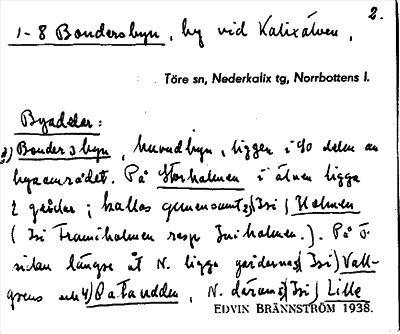 2.
1-8 Bondersbyn, by vid Kalixälven,
Töre sn, Nederkalix tg, Norrbottens l.
Byadelar:
1) Bondersbyn, huvudbyn, ligger i So delen av
byaområdet. På Storholmen i älven ligga
2 gårdar; kallas gemensamt 2) (Isi) Holmen
(Isi Framiholmen resp Iniholmen.). På
sidan längre åt N. ligga gårdarna 3) (Isi) Vall-
grens och 4) På Tåudden, N. därom 5) (Isi) Lille
EDVIN BRÄNNSTRÖM 1938.